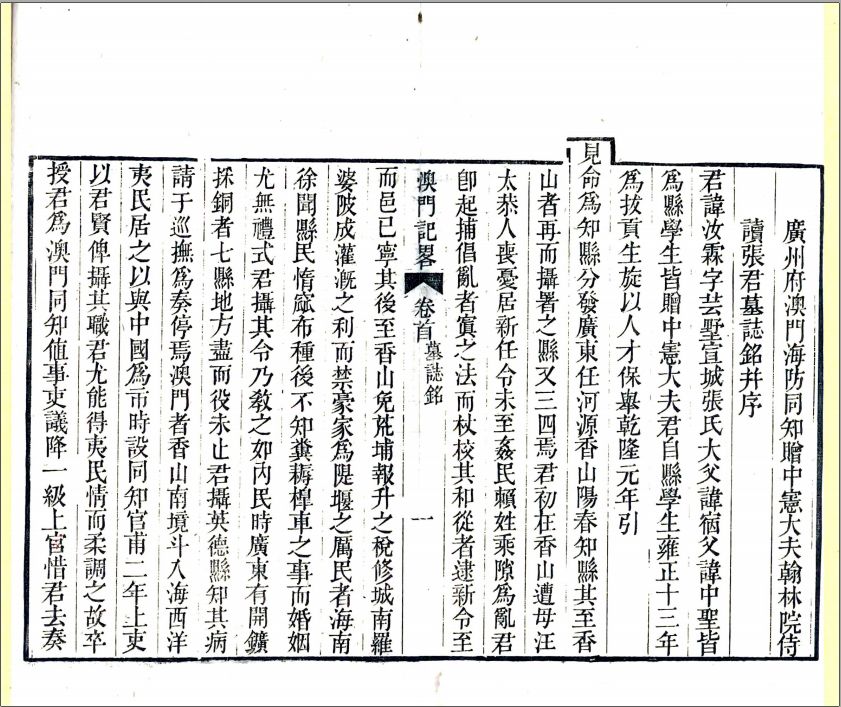 廣州府澳門海防同知贈中憲大夫翰林院侍
讀張君墓誌銘幷序
君諱汝霖字芸墅宣城張氏大父諱宿父諱中聖皆
爲縣學生皆贈中憲大夫君自縣學生雍正十三年
爲拔貢生旋以人才保舉乾隆元年引
見命爲知縣分發廣東任河源香山陽春知縣其至香
山者再而攝署之縣又三四焉君初在香山遭母汪
太恭人喪憂居新任令未至姦民賴姓乘隙爲亂君
卽起捕倡亂者寘之法而杖校其和從者逮新令至
澳門記畧 卷首 墓誌銘 一
而邑已寧其後至香山免茺埔報升之稅修城南羅
婆陂成灌漑之利而禁豪家爲隄堰之厲民者海南
徐聞縣民惰窳布種後不知糞耨桿車之事而婚姻
尤無禮式君攝其令乃敎之如內民時廣東有開鑛
採銅者七縣地方盡而役未止君攝英德縣知其病
請于巡撫爲奏停焉澳門者香山南境斗入海西洋
夷民居之以與中國爲市時設同知官甫二年上吏
以君賢俾攝其職君尤能得夷民情而柔調之故卒
授君爲澳門同知値事吏議降一級上官惜君去奏